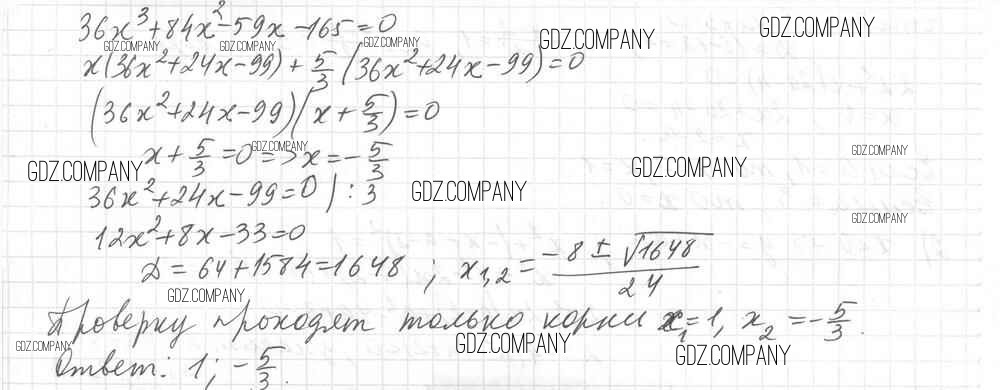 36x³+84x²-59x-165=0
GDZ.COMPANY GDZ.COMPANY GDZ.COMPANY GDZ.COMPANY GDZ.COMPANY
x(36x²+24x-99)+5/3(36x²+24x-99)=0
(36x²+24x-99)(x+5/3)=0
GDZ.COMPANY
x+5/3=0=>x=-5/3
GDZ.COMPANY GDZ.COMPANY GDZ.COMPANY
36x²+24x-99=0|:3
GDZ.COMPANY
12x²+8x-33=0
GDZ.COMPANY
D=64+1584=1648; x1,2=(-8±√1648)/24
GDZ.COMPANY
Проверку проходят только корни x₁=1, x₂=-5/3.
GDZ.COMPANY GDZ.COMPANY GDZ.COMPANY
Ответ: 1; -5/3.